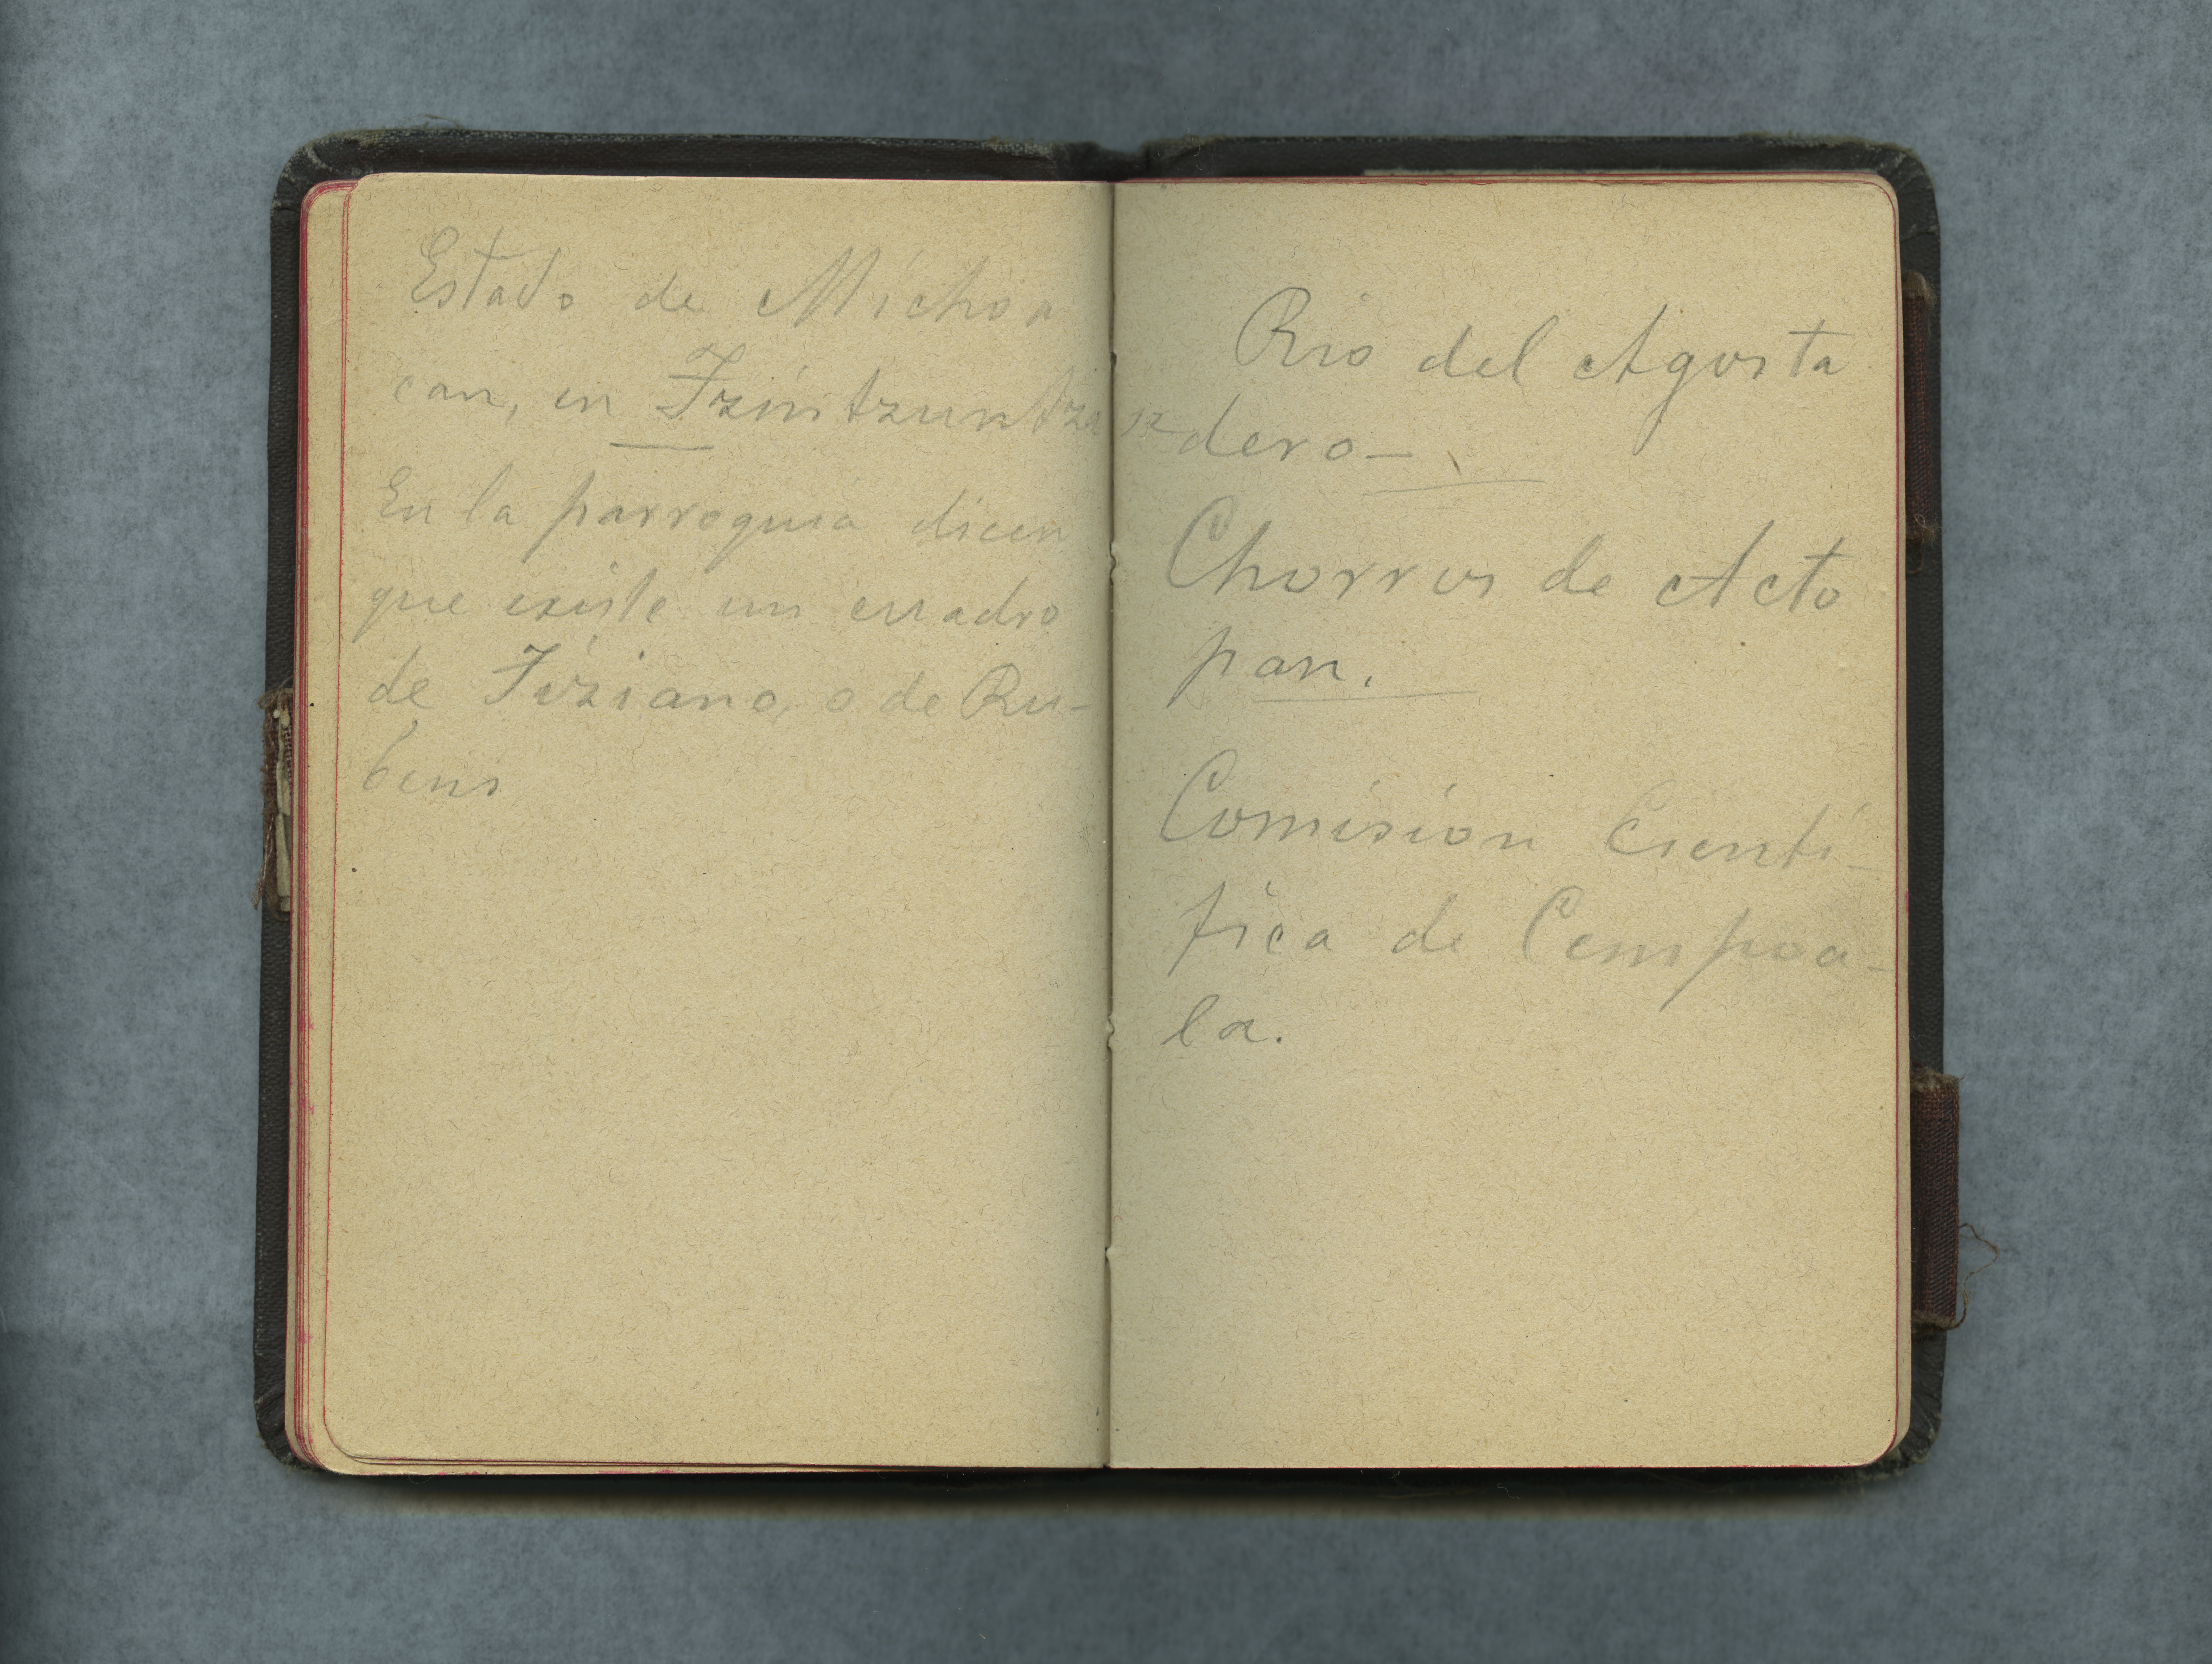 Estado de Michoa
can, en Tzintzuntzan
En la parroquia dicen
que existe un cuadro
de Tiziano, o de Ru-
bens
Rio del Agosta
dero—
Chorros de Acto
pan.
Comisión Cientí-
fica de Cempoa-
la.